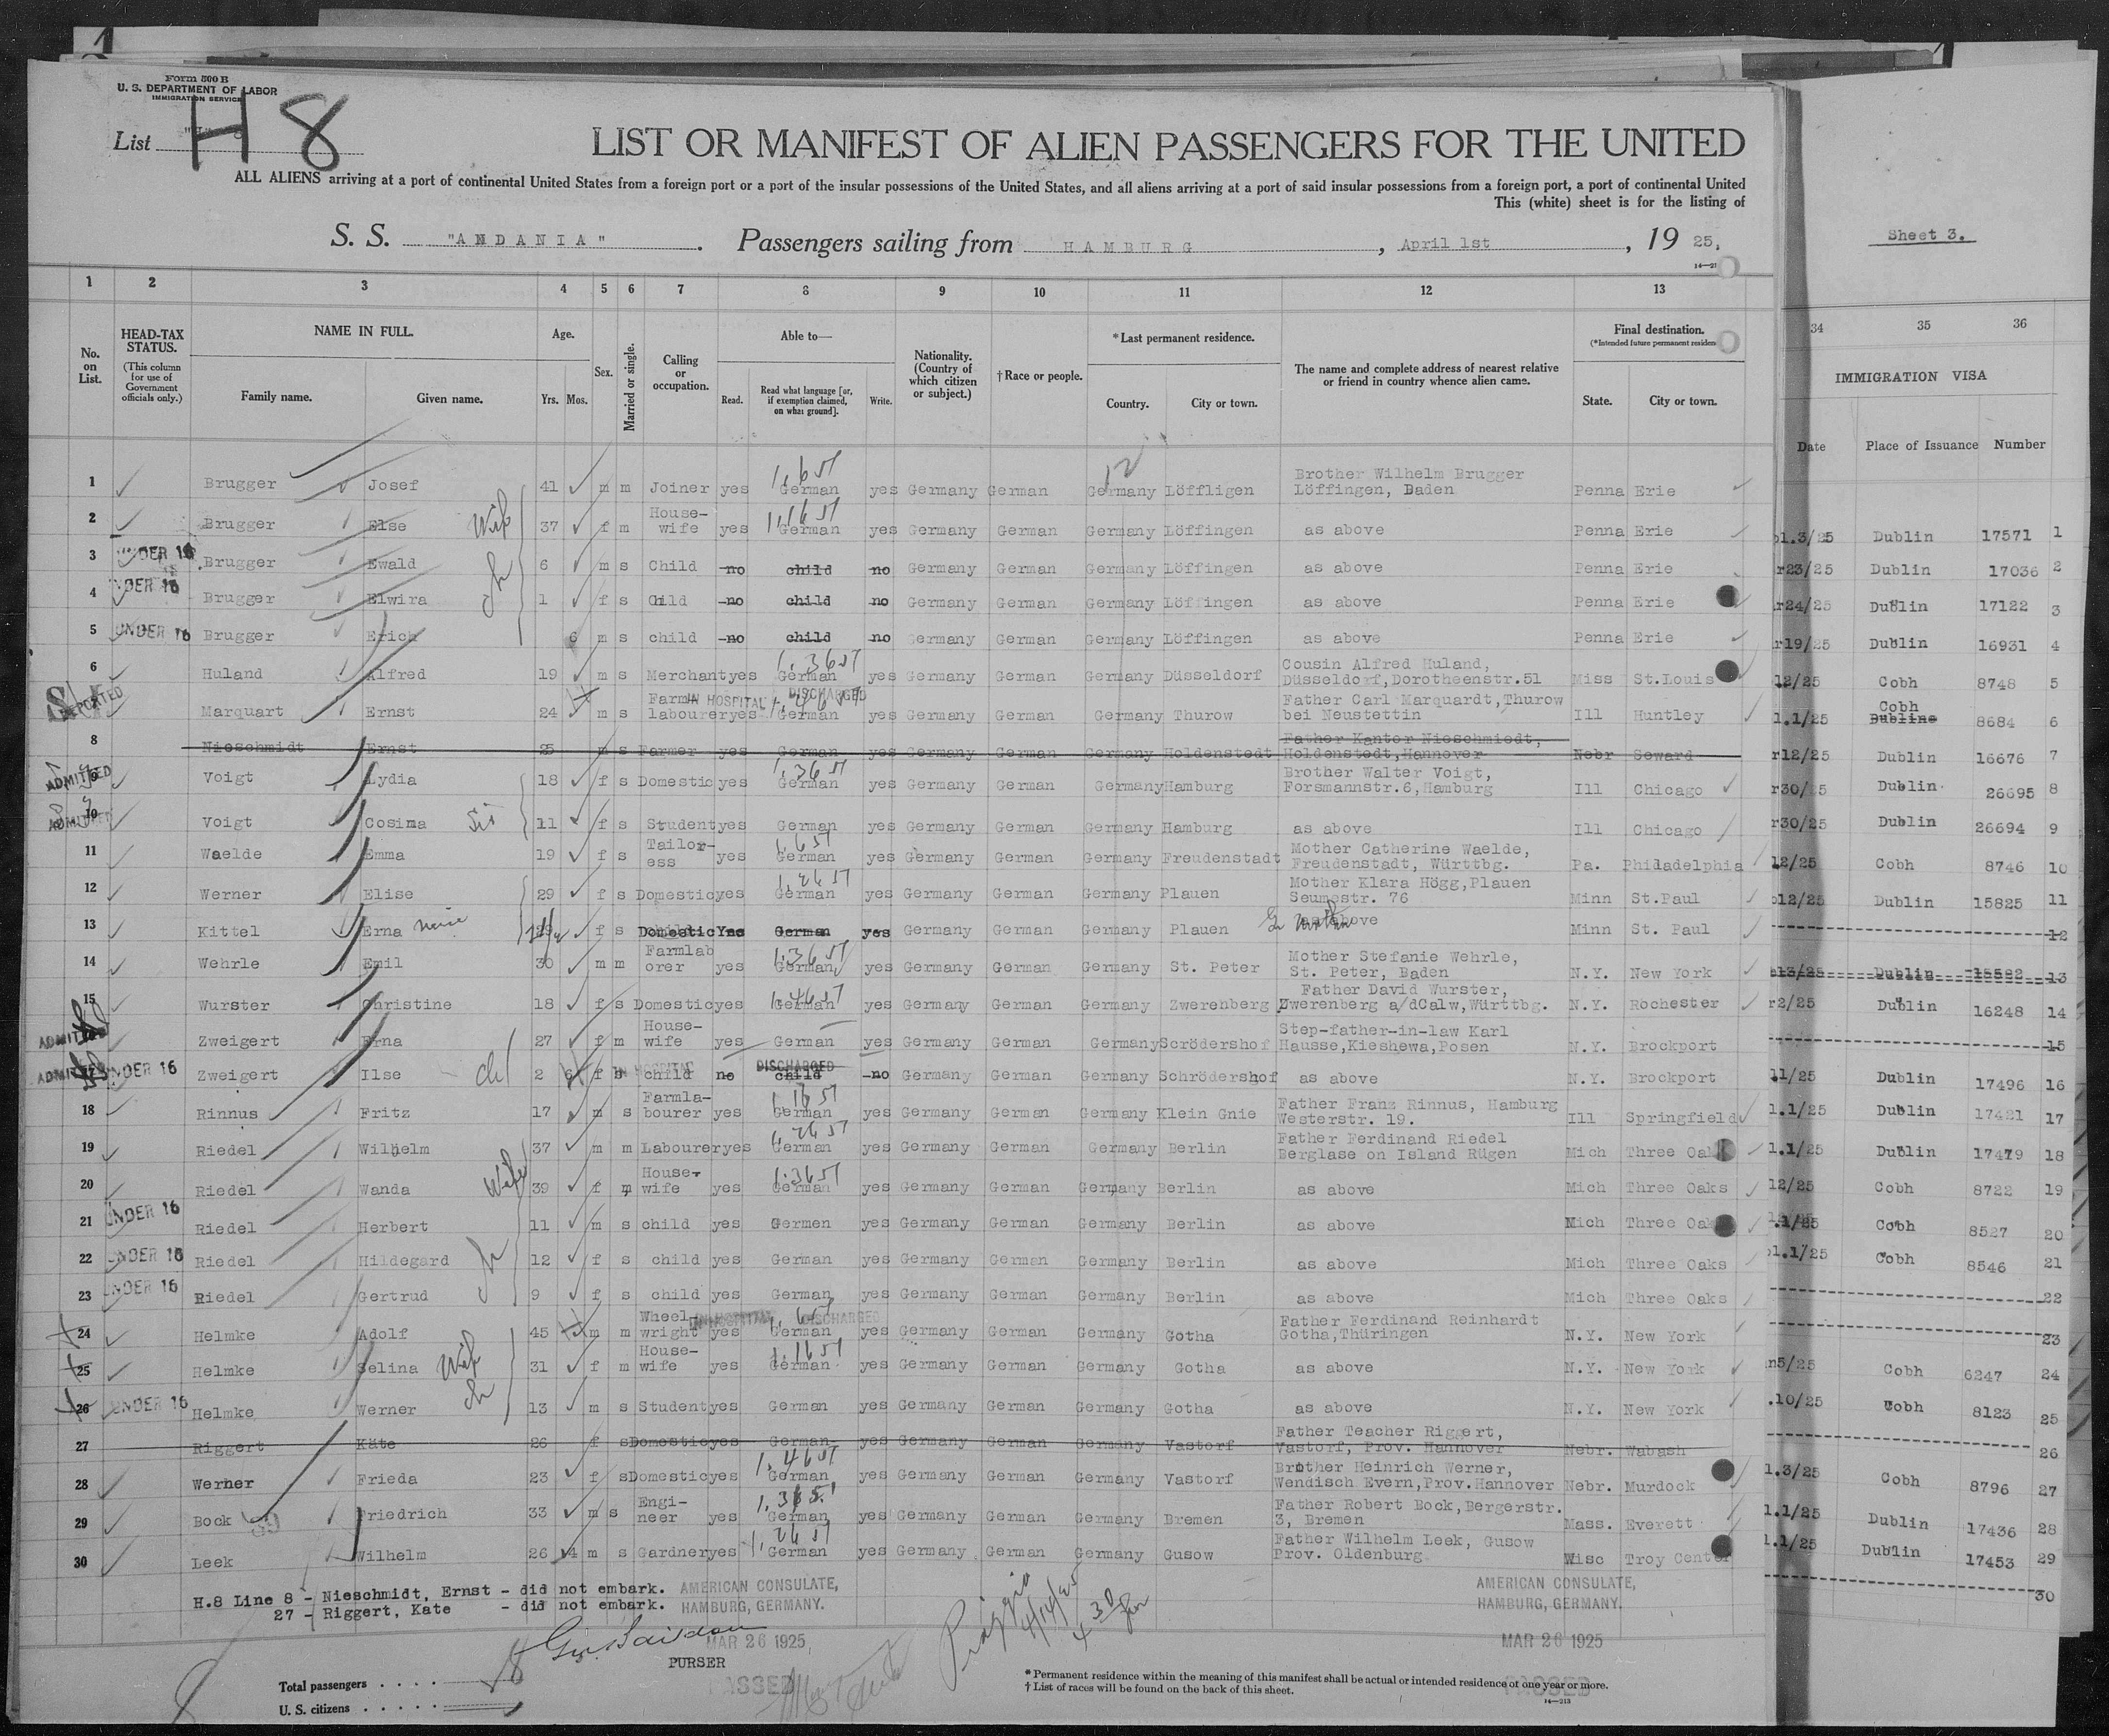 Form 500 B
U. S. DEPARTMENT OF LABOR
IMMIGRATION SERVICE
List H 8
LIST OR MANIFEST OF ALIEN PASSENGERS FOR THE UNITED
ALL ALIENS arriving at a port of continental United States from a foreign port or a port of the insular possessions of the United States, and all aliens arriving at a port of said insular possessions from a foreign port, a port of continental United
This (white) sheet is for the listing of
S. S. "ANDANIA". Passengers sailing from HAMBURG, April 1st, 1925.
Sheet 3.
1 2 3 4 5 6 7 8 9 10 11 12 13
34 35 36
No. on List.
HEAD-TAX STATUS.
(This column for use of Government officials only.)
NAME IN FULL.
Family name. Given name.
Age.
Yrs. Mos.
Sex.
Married or single.
Calling or occupation.
Able to—
Read. Read what language [or, if exemption claimed, on what ground]. Write.
Nationality. (Country of which citizen or subject.)
† Race or people.
*Last permanent residence.
Country. City or town.
The name and complete address of nearest relative or friend in country whence alien came.
Final destination.
(*Intended future permanent residen
State. City or town.
IMMIGRATION VISA
Date Place of Issuance Number
1 Brugger Josef 41 m m Joiner yes German yes Germany German Germany Löffligen Brother Wilhelm Brugger Löffingen, Baden Penna Erie
2 Brugger Else Wife 37 f m House-wife yes German yes Germany German Germany Löffingen as above Penna Erie
3 UNDER 16 Brugger Ewald 6 m s Child no child no Germany German Germany Löffingen as above Penna Erie
4 UNDER 16 Brugger Elwira ch 1 f s Child no child no Germany German Germany Löffingen as above Penna Erie
5 UNDER 16 Brugger Erich 6 m s child no child no Germany German Germany Löffingen as above Penna Erie
6 Huland Alfred 19 m s Merchant yes German yes Germany German Germany Düsseldorf Cousin Alfred Huland, Düsseldorf,Dorotheenstr.51 Miss St.Louis
DEPORTED Marquart Ernst 24 m s Farm labourer IN HOSPITAL DISCHARGED yes German yes Germany German Germany Thurow Father Carl Marquardt,Thurow bei Neustettin Ill Huntley
8 Nieschmidt Ernst 25 m s Farmer yes German yes Germany German Germany Holdenstedt Father Kantor Nieschmiedt, Holdenstedt,Hannover Nebr Seward
ADMITTED Voigt Lydia 18 f s Domestic yes German yes Germany German Germany Hamburg Brother Walter Voigt, Forsmannstr.6,Hamburg Ill Chicago
10 ADMITTED Voigt Cosima Sis 11 f s Student yes German yes Germany German Germany Hamburg as above Ill Chicago
11 Waelde Emma 19 f s Tailor-ess yes German yes Germany German Germany Freudenstadt Mother Catherine Waelde, Freudenstadt, Württbg. Pa. Philadelphia
12 Werner Elise 29 f s Domestic yes German yes Germany German Germany Plauen Mother Klara Högg,Plauen Seumestr. 76 Minn St.Paul
13 Kittel Erna niece f s Domestic Yes German yes Germany German Germany Plauen as above Minn St. Paul
14 Wehrle Emil 30 m m Farmlaborer yes German yes Germany German Germany St. Peter Mother Stefanie Wehrle, St. Peter, Baden N.Y. New York
15 Wurster Christine 18 f s Domestic yes German yes Germany German Germany Zwerenberg Father David Wurster, Zwerenberg a/dCalw,Württbg. N.Y. Rochester
ADMITTED Zweigert Erna 27 f m House-wife yes German yes Germany German Germany Scrödershof Step-father-in-law Karl Hausse,Kieshewa,Posen N.Y. Brockport
ADMITTED UNDER 16 Zweigert Ilse ch 2 6 f s IN HOSPITAL child no DISCHARGED child no Germany German Germany Schrödershof as above N.Y. Brockport
18 Rinnus Fritz 17 m s Farmla-bourer yes German yes Germany German Germany Klein Gnie Father Franz Rinnus, Hamburg Westerstr. 19. Ill Springfield
19 Riedel Wilhelm 37 m m Labourer yes German yes Germany German Germany Berlin Father Ferdinand Riedel Berglase on Island Rügen Mich Three Oaks
20 Riedel Wanda Wife 39 f m House-wife yes German yes Germany German Germany Berlin as above Mich Three Oaks
21 UNDER 16 Riedel Herbert 11 m s child yes Germen yes Germany German Germany Berlin as above Mich Three Oaks
22 UNDER 16 Riedel Hildegard ch 12 f s child yes German yes Germany German Germany Berlin as above Mich Three Oaks
23 UNDER 16 Riedel Gertrud 9 f s child yes German yes Germany German Germany Berlin as above Mich Three Oaks
24 Helmke Adolf 45 m m Wheel-wright IN HOSPITAL DISCHARGED yes German yes Germany German Germany Gotha Father Ferdinand Reinhardt Gotha,Thüringen N.Y. New York
25 Helmke Selina Wife 31 f m House-wife yes German yes Germany German Germany Gotha as above N.Y. New York
26 UNDER 16 Helmke Werner ch 13 m s Student yes German yes Germany German Germany Gotha as above N.Y. New York
27 Riggert Käte 26 f s Domestic yes German yes Germany German Germany Vastorf Father Teacher Riggert, Vastorf, Prov. Hannover Nebr. Wabash
28 Werner Frieda 23 f s Domestic yes German yes Germany German Germany Vastorf Brother Heinrich Werner, Wendisch Evern,Prov.Hannover Nebr. Murdock
29 Bock Friedrich 33 m s Engi-neer yes German yes Germany German Germany Bremen Father Robert Bock,Bergerstr. 3, Bremen Mass. Everett
30 Leek Wilhelm 26 m s Gardner yes German yes Germany German Germany Gusow Father Wilhelm Leek, Gusow Prov. Oldenburg Wisc Troy Center
1.3/25 Dublin 17571 1
r23/25 Dublin 17036 2
r24/25 Dublin 17122 3
r19/25 Dublin 16931 4
12/25 Cobh 8748 5
1.1/25 Cobh Dubline 8684 6
r12/25 Dublin 16676 7
r30/25 Dublin 26695 8
r30/25 Dublin 26694 9
12/25 Cobh 8746 10
12/25 Dublin 15825 11
12
13/25 Dublin 15592 13
r2/25 Dublin 16248 14
15
11/25 Dublin 17496 16
1.1/25 Dublin 17421 17
1.1/25 Dublin 17479 18
12/25 Cobh 8722 19
1.1/25 Cobh 8527 20
1.1/25 Cobh 8546 21
22
23
n5/25 Cobh 6247 24
.10/25 Cobh 8123 25
26
1.3/25 Cobh 8796 27
1.1/25 Dublin 17436 28
1.1/25 Dublin 17453 29
30
H.8 Line 8 - Nieschmidt, Ernst - did not embark.
27 - Riggert, Kate - did not embark.
AMERICAN CONSULATE,
HAMBURG, GERMANY.
MAR 26 1925
PASSED
PURSER
AMERICAN CONSULATE,
HAMBURG, GERMANY.
MAR 26 1925
PASSED
Total passengers . . . .
U. S. citizens . . . . .
* Permanent residence within the meaning of this manifest shall be actual or intended residence of one year or more.
† List of races will be found on the back of this sheet.
14—213